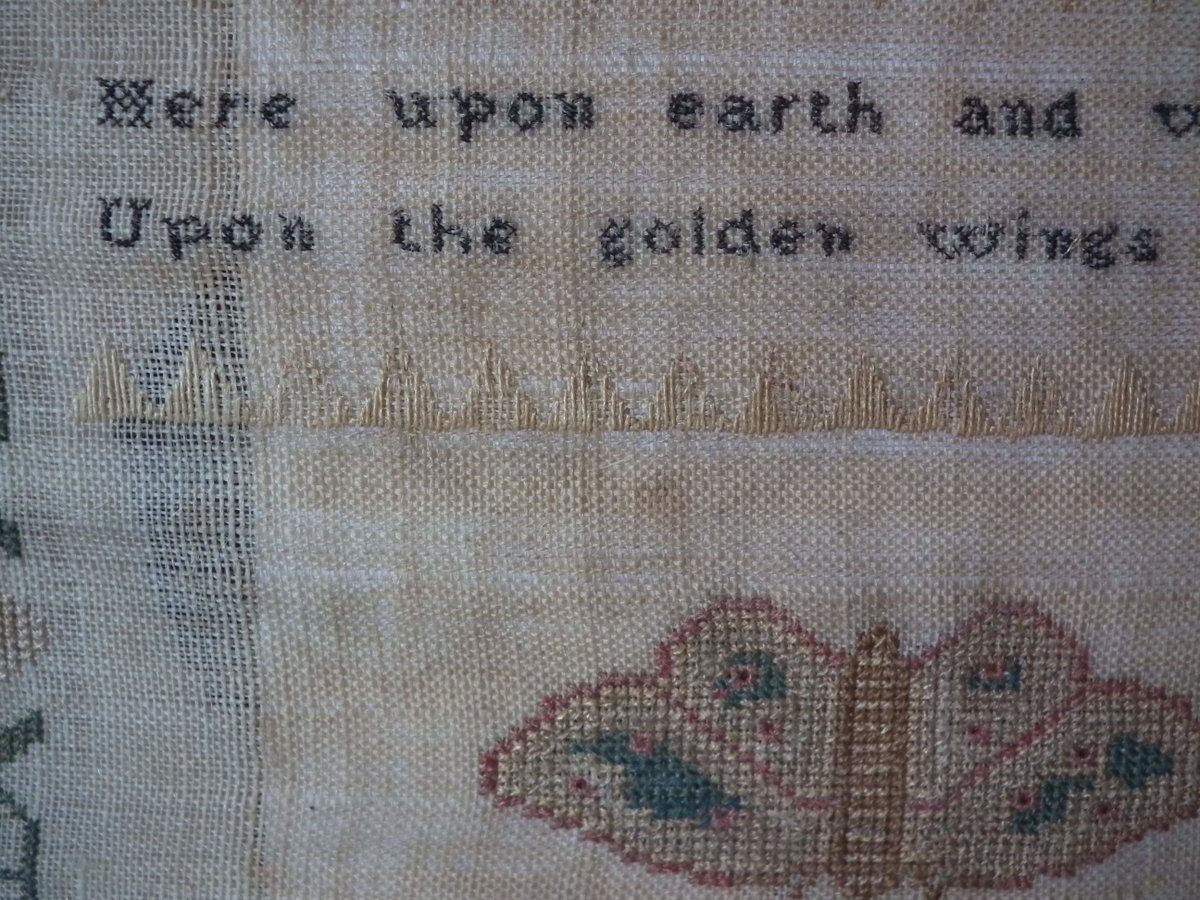 Here upon earth and
Upon the golden wings